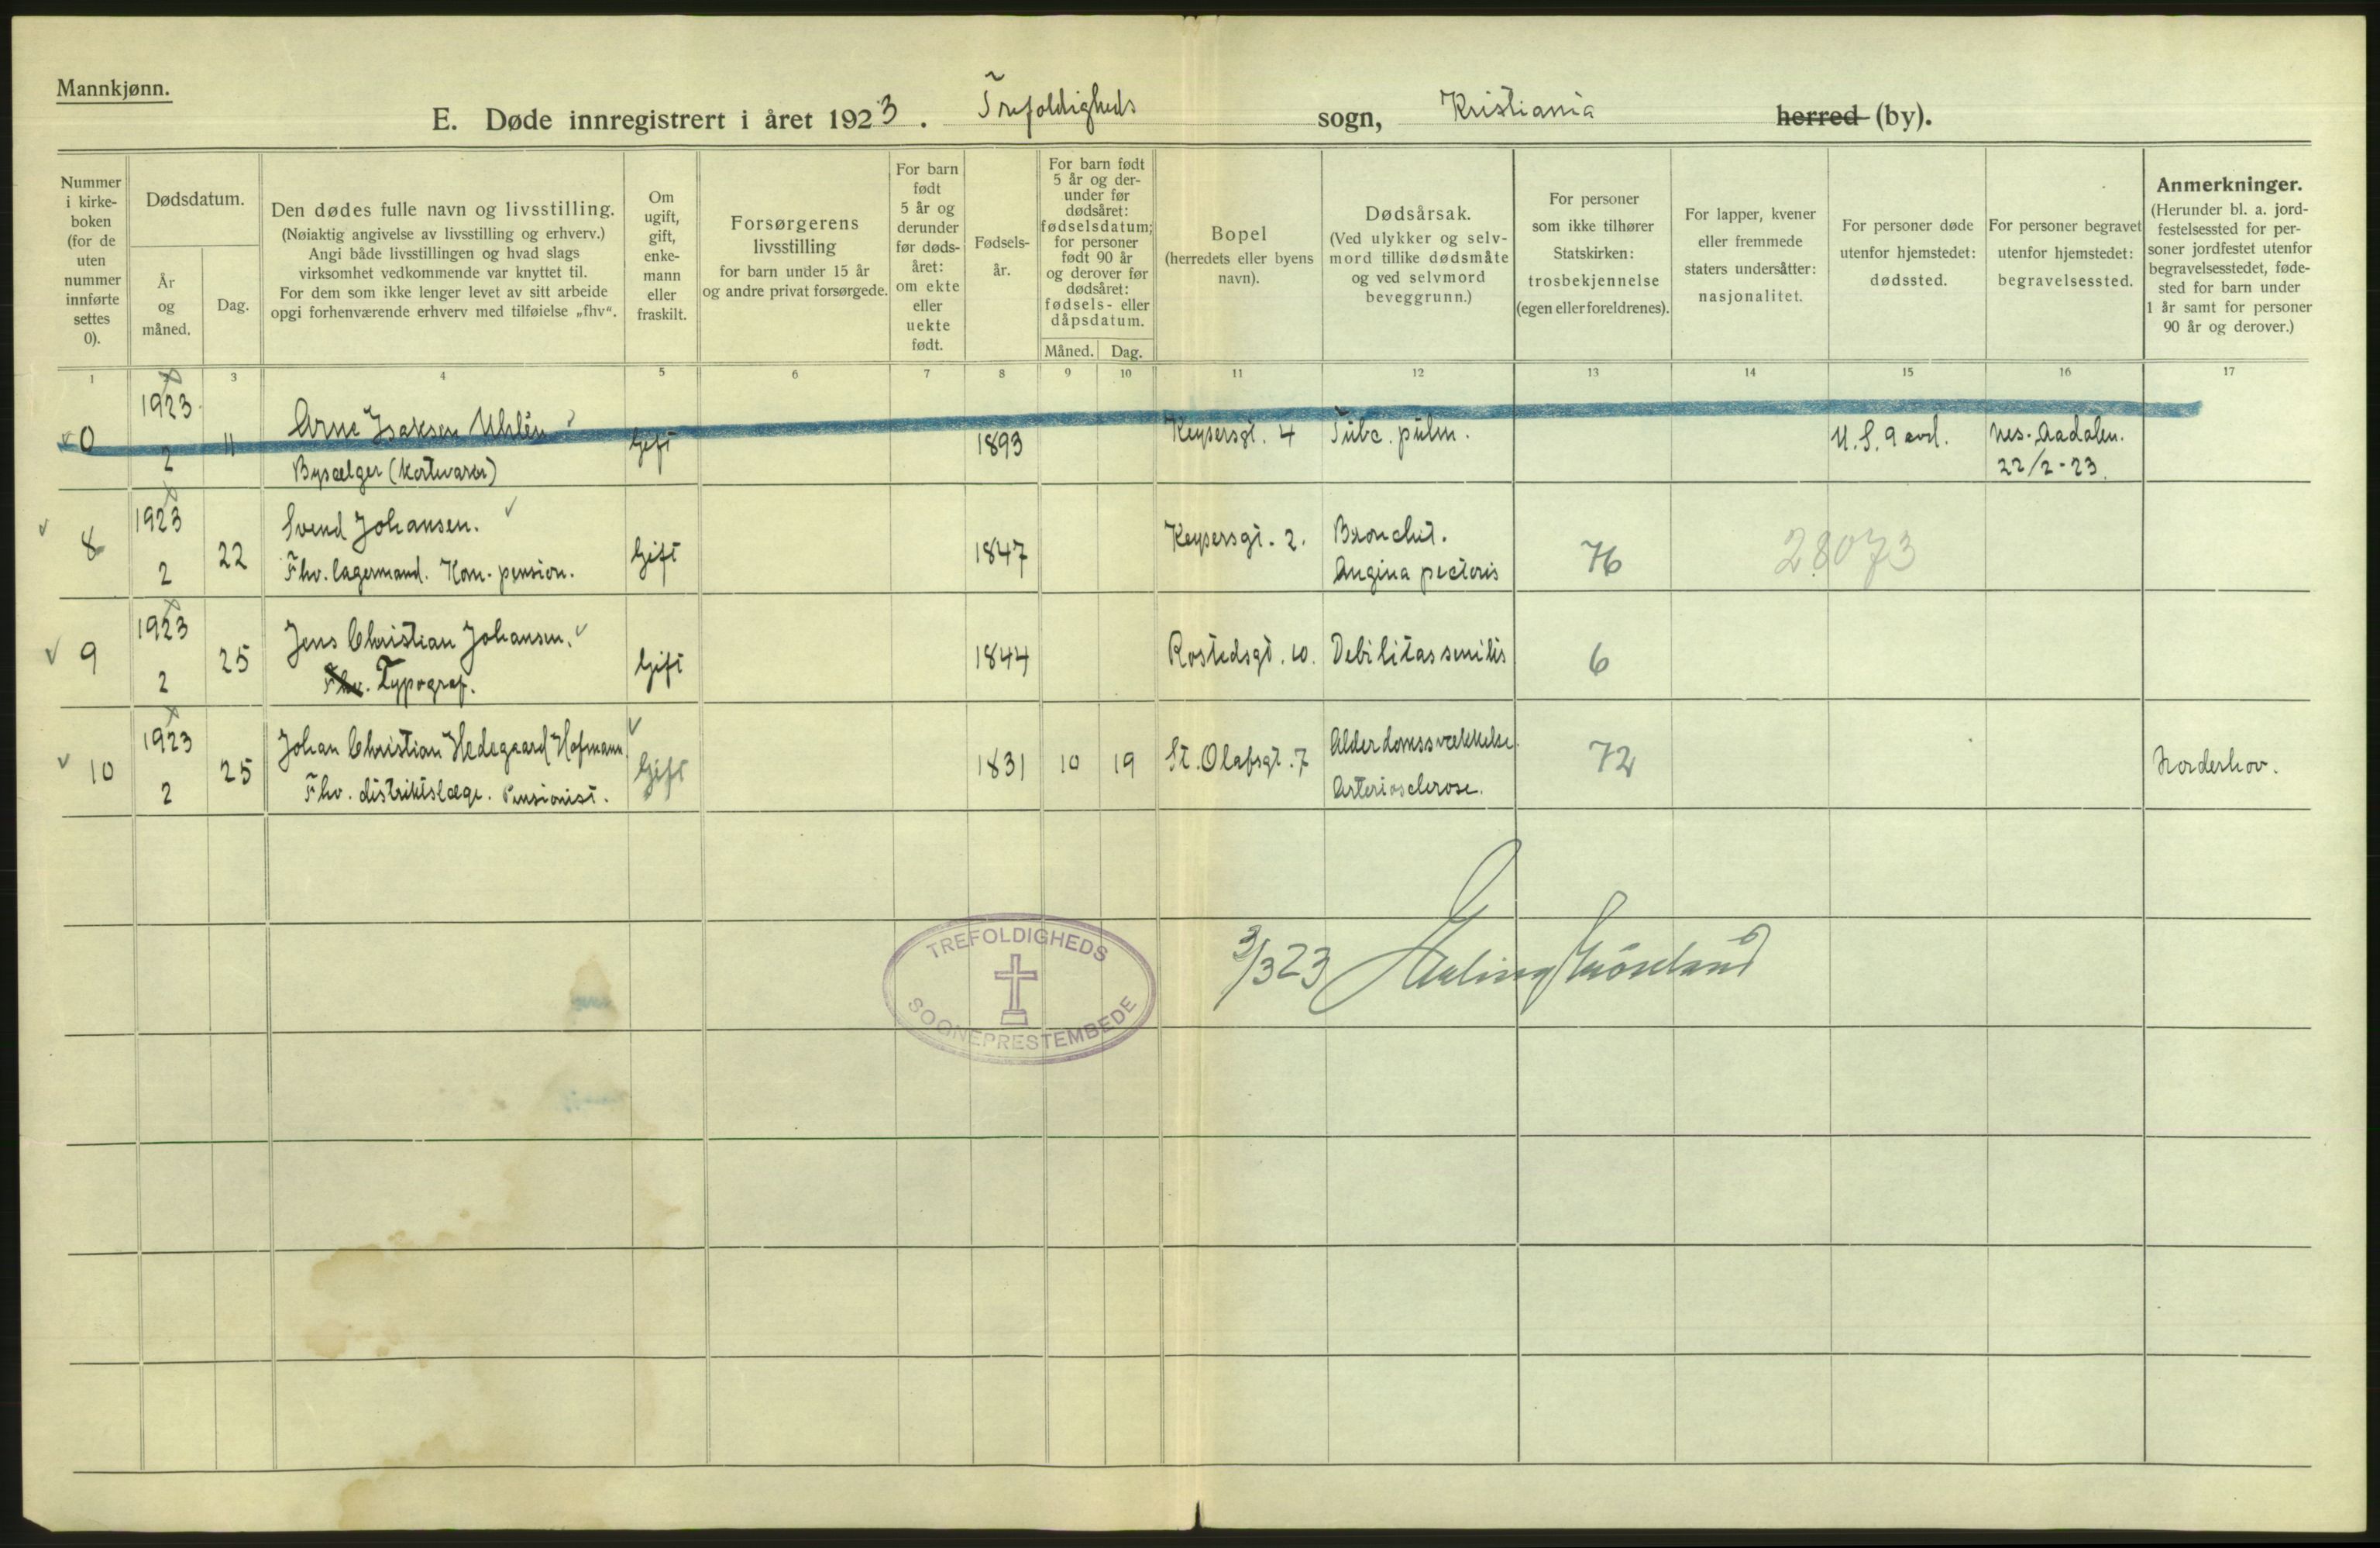 Mannkjønn.
E. Døde innregistrert i året 1923. Trefoldigheds sogn, Kristiania herred (by).
Nummer
i kirke-
boken
(for de
uten
nummer
innførte
settes
0).
Dødsdatum.
År
og
måned.
Dag.
Den dødes fulle navn og livsstilling.
(Nøiaktig angivelse av livsstilling og erhverv.)
Angi både livsstillingen og hvad slags
virksomhet vedkommende var knyttet til.
For dem som ikke lenger levet av sitt arbeide
opgi forhenværende erhverv med tilføielse „fhv“.
Om
ugift,
gift,
enke-
mann
eller
fraskilt.
Forsørgerens
livsstilling
for barn under 15 år
og andre privat forsørgede.
For barn
født
5 år og
derunder
før døds-
året:
om ekte
eller
uekte
født.
Fødsels-
år.
For barn født
5 år og der-
under før
dødsåret:
fødselsdatum;
for personer
født 90 år
og derover før
dødsåret:
fødsels- eller
dåpsdatum.
Måned. Dag.
Bopel
(herredets eller byens
navn).
Dødsårsak.
(Ved ulykker og selv-
mord tillike dødsmåte
og ved selvmord
beveggrunn.)
For personer
som ikke tilhører
Statskirken:
trosbekjennelse
(egen eller foreldrenes).
For lapper, kvener
eller fremmede
staters undersåtter:
nasjonalitet.
For personer døde
utenfor hjemstedet:
dødssted.
For personer begravet
utenfor hjemstedet:
begravelsessted.
Anmerkninger.
(Herunder bl. a. jord-
festelsessted for per-
soner jordfestet utenfor
begravelsesstedet, føde-
sted for barn under
1 år samt for personer
90 år og derover.)
1 3 4 5 6 7 8 9 10 11 12 13 14 15 16 17
1923
0 2 11 Arne Isaksen Uhlén Gift 1893 Keysersgt. 4 Tubc. pulm. U.S. 9 avd. Nes. Aadalen.
Bysælger (kortevarer) 22/2-23.
1923 Svend Johansen. Keysersgt. 2. Bronchit.
8 2 22 Fhv. lagermand. Kom. pension. Gift 1847 Angina pectoris 76 28073
1923 Jens Christian Johansen.
9 2 25 Fhv. Typograf. Gift 1844 Rostedsgt. 10. Debilitas senilis 6
1923 Johan Christian Hedegaard Hofmann Alderdomssvækkelse
10 2 25 Fhv. distriktslæge. Pensionist. Gift 1831 10 19 St. Olafsgt. 7 Arteriosclerose. 72 Norderhov.
TREFOLDIGHEDS
SOGNEPRESTEMBEDE
3/3 23 Erling Grönland